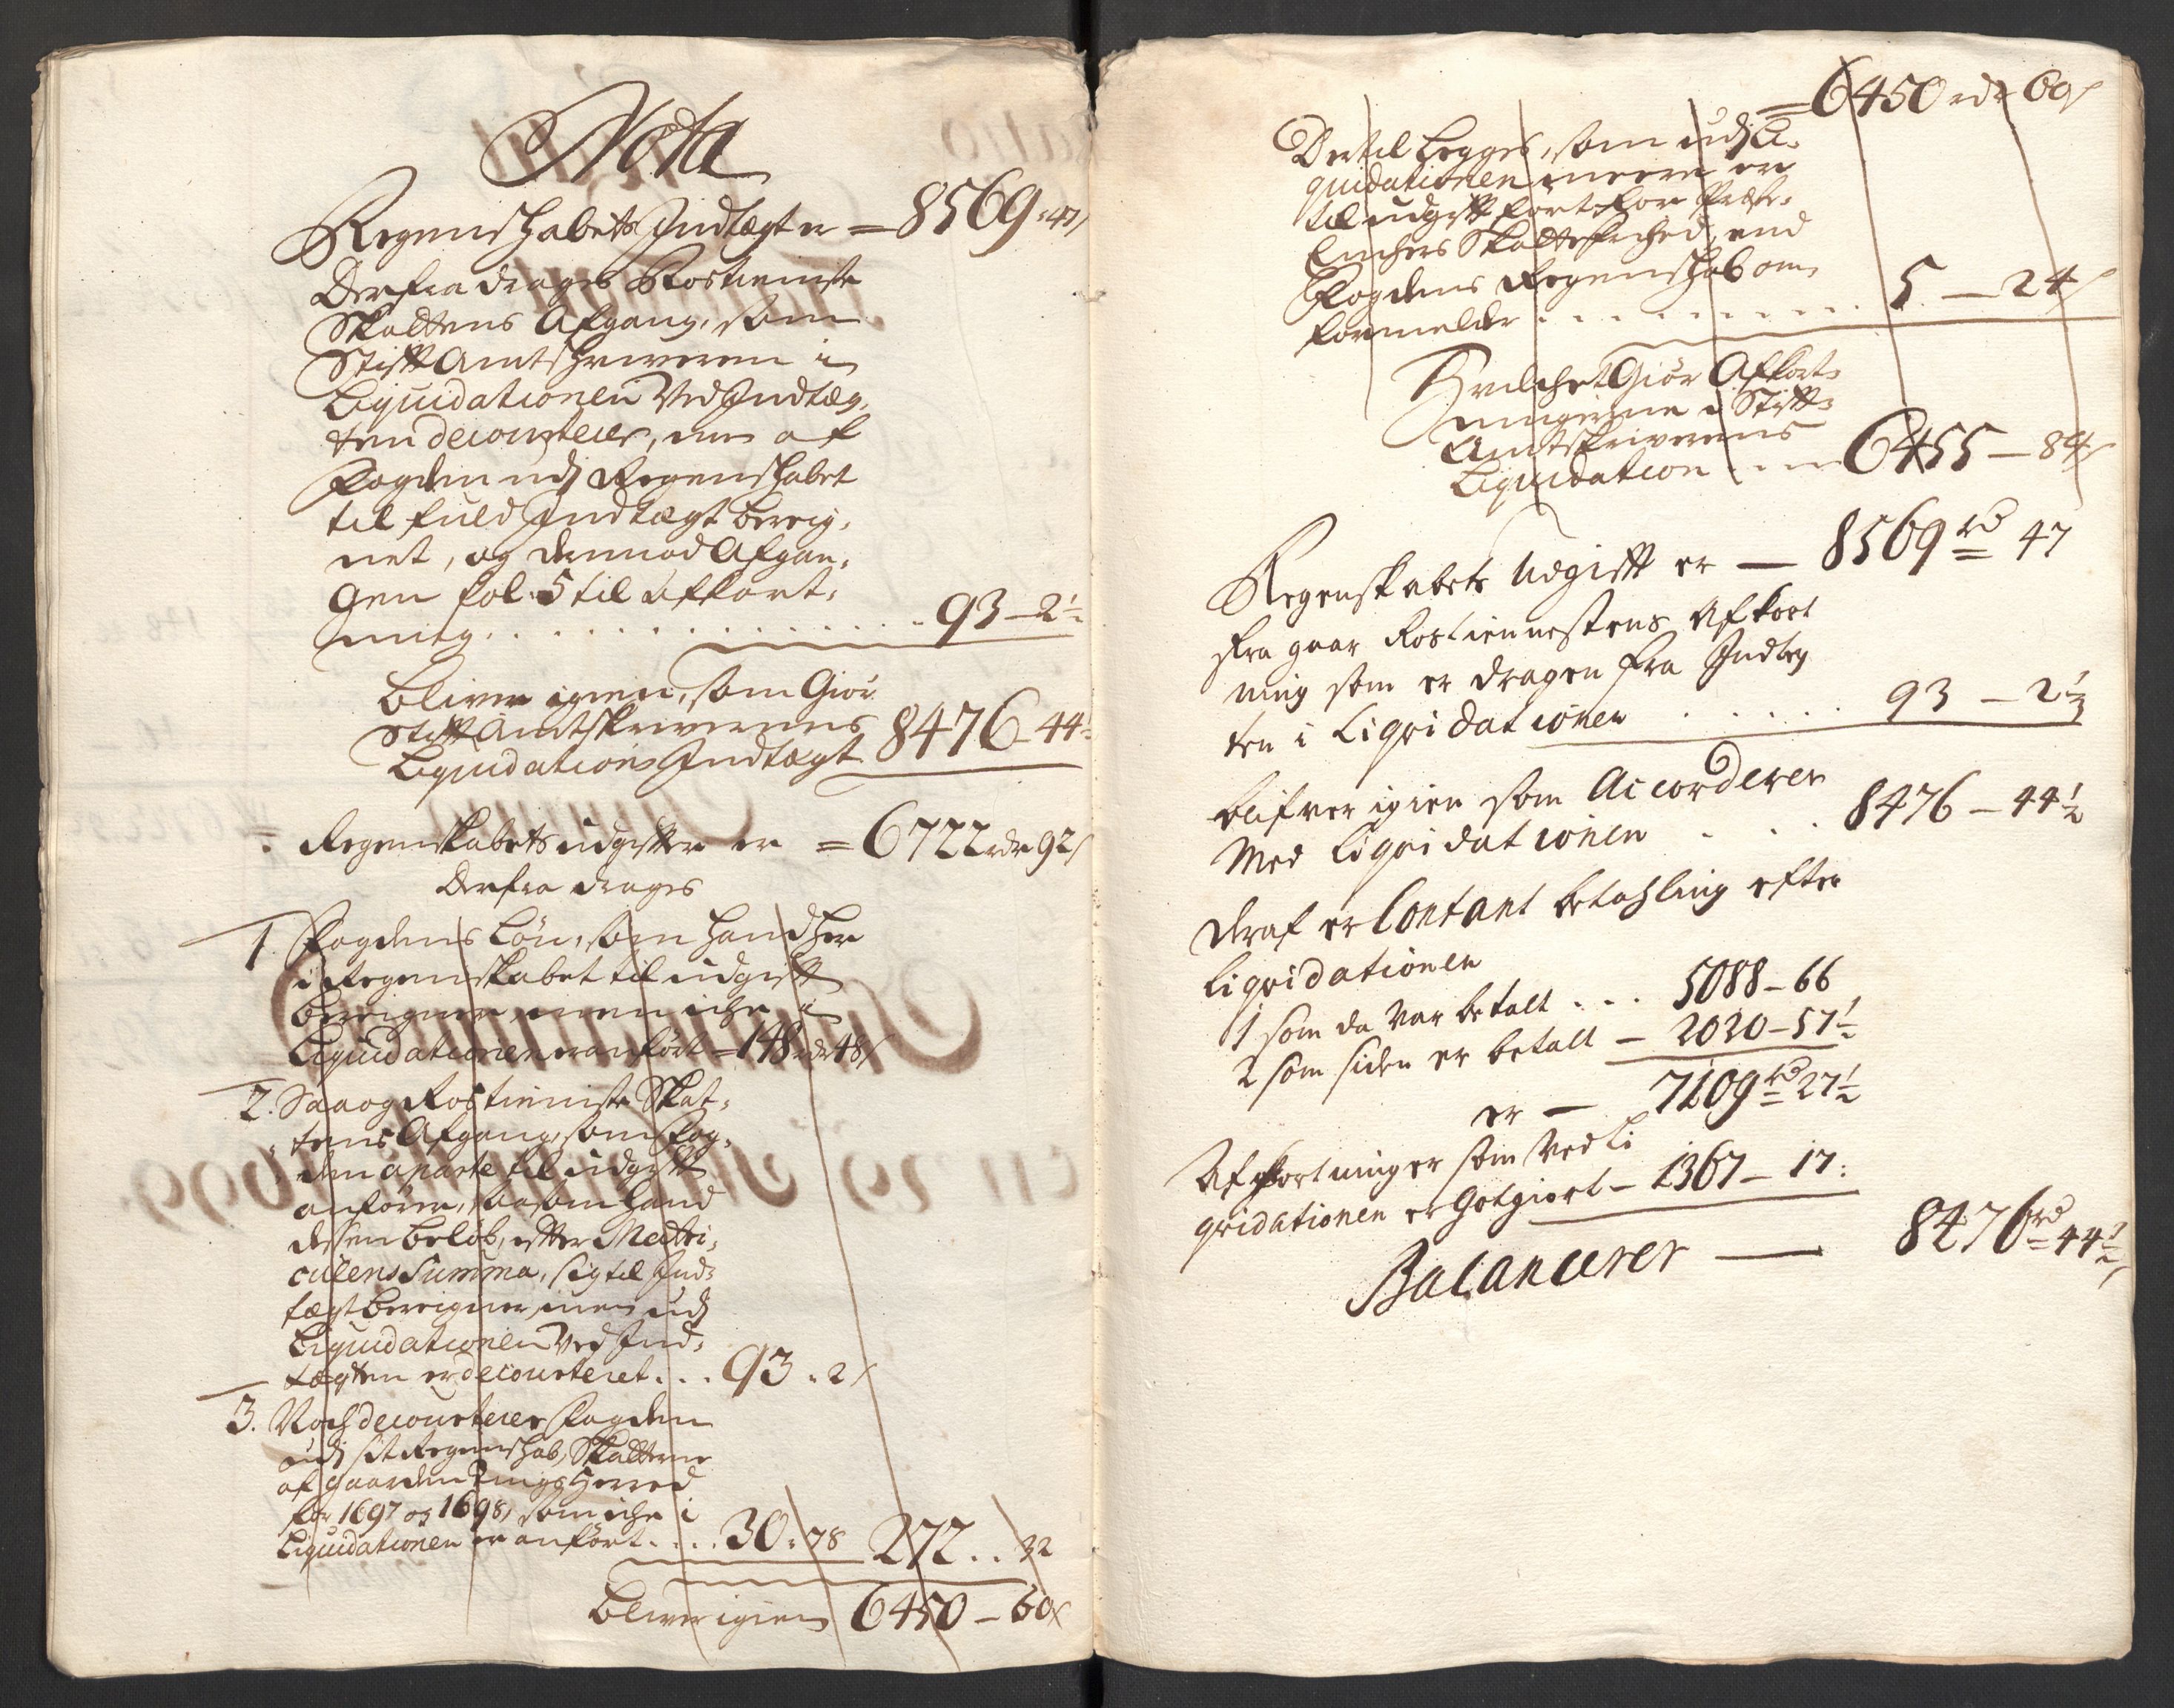 Nota
Regenschabets Indtægt er = 8569 : 47
Derfra drages Rostieniste
Skattens Afgang, som
Stiftamtschriveren i
Liquidationen Ved Indtæg,
ten decourterer, men af
Fogden udj Regenschabet
til fuld Indtægt bereig,
net, og dermod Afgan,
gen fol. 5 til afkort,
ning . . . . . . . . . . . . 93 – 2½
bliver igien, som Giør
Stiftamtskriverens
Liquidations Indtægt 8476 – 44½
Regenskabets udgifter er = 6722 rdr 92 s
Derfra drages
1. Fogdens Løn, som hand her
i Regenskabet til udgift
bereigner, men iche i
Liquidationen er anført = 148 rdr 48 s
2. Saa og Rostieniste Skat,
tens Afgang, som Fog,
den aparte til udgift
anfører, saasom hand
dessen beløb, efter Matri,
culens Summa, sig til Ind,
tægt bereigner, men udj
Liquidationen Ved Ind,
tægten er decourteret . . . 93 . 2 s
3. Noch decourterer Fogden
udj sit Regenschab, Skatterne
af gaarden Herred
for 1697 og 1698, som iche i
Liquidationen er anført . . . . 30 : 78 272 . . 32
bliver igien 6450 – 60 s
= 6450 rdr 60 s
Dertil Legges, som udj Li,
quidationen meere er
til udgift ført for Præste,
Enchers Skattefrihed, end
Fogdens Regenschab om,
formelder . . . . . . . . . . 5 – 24 s
Hvilchet Giør Afkort,
ningerne i Stift,
Amtskriverens
Liquidation . . . 6455 – 84 s
Regenskabets Udgift er — 8569 rd 47
fra gaar Rostiennestens Afkort
ning som er dragen fra Indteg
ten i Liqvidationen . . . . . . 93 – 2½
blifver igien som Accorderer
Med Liqvidationen . . . 8476 – 44½
Deraf er Contant betahling efter
Liqvidationen
1 som da Var betalt . . . 5088 – 66
2 som siden er betalt – 2020 – 57½
er — 7109 rd 27½
Afkortninger som Ved Li
qvidationen er Godgiort – 1367 – 17 :
Balancerer — 8476 rd 44½